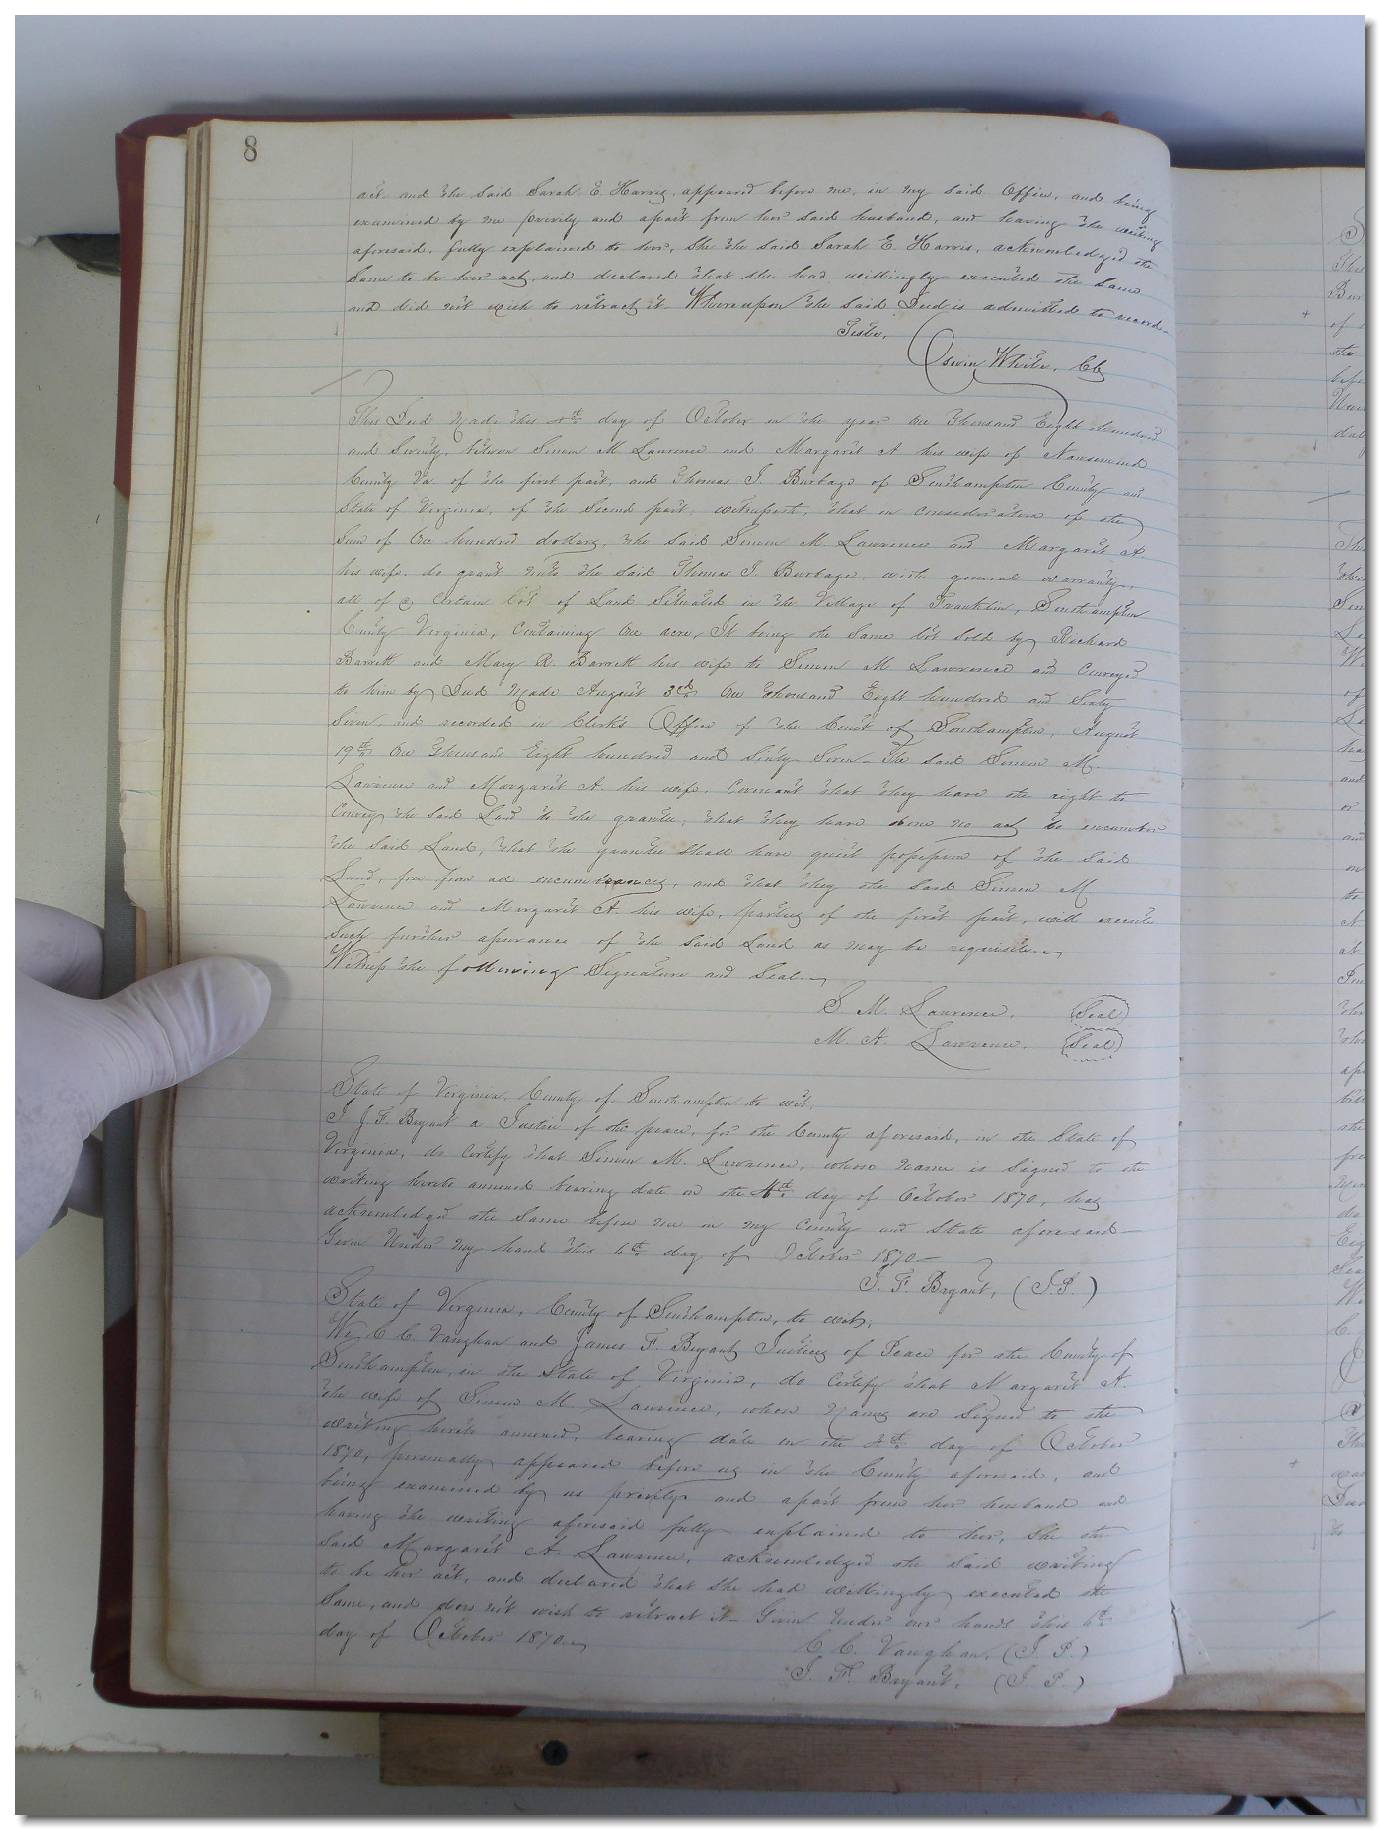 8
act. and the said Sarah E Harris, appeared before me, in my said Office, and being
examined by me privily and apart from her said husband, and having the writing
aforesaid, fully explained to her, She the said Sarah E. Harris, acknowledged the
Same to be her act, and declared that she had willingly executed the same
and did not wish to retract it. Whereupon the said Deed is admitted to record
Teste,
White, Clk
This Deed Made this 4th day of October in the year One Thousand Eight Hundred
and Seventy, between Simon M Lawrence and Margaret A his wife of Nansemond
County Va. of the first part, and Thomas J. Burbage of Southampton County and
State of Virginia, of the Second part, witnesseth, that in consideration of the
Sum of One hundred dollars, the said Simon M Lawrence and Margaret A.
his wife. do grant unto the said Thomas J. Burbage with general warranty,
all of a Certain lot of Land Situated in the Village of Franklin, Southampton
County Virginia, Containing One acre, It being the Same lot Sold by Richard
Barrett and Mary R. Barrett his wife to Simon M Lawrence and Conveyed
to him by Deed Made August 3rd One thousand Eight hundred and Sixty
Seven, and recorded in Clerk's Office of the Court of Southampton, August
19th One Thousand Eight hundred and Sixty Seven - The said Simon M.
Lawrence and Margaret A. his wife. Covenant that they have the right to
Convey the said Land to the grantee; that they have done no act to encumber
the said Land, that the grantee Shall have quiet possession of the Said
Land, free from all encumbrances, and that they the said Simon M
Lawrence and Margaret A. his wife, parties of the first part, will execute
Such further assurance of the said Land as may be requisite.
Witness the following Signature and Seal.
S. M. Lawrence. (Seal)
M. A. Lawrence. (Seal)
State of Virginia, County of Southampton to wit,
I J. F. Bryant a Justice of the peace, for the County aforesaid, in the State of
Virginia, do Certify that Simon M. Lawrence, whose Name is Signed to the
writing hereto annexed bearing date on the 4th day of October 1870, has
acknowledged the Same before me in my County and State aforesaid
Given Under My hand this 6th day of October 1870
J. F. Bryant, (J.P.)
State of Virginia, County of Southampton, to wit,
We, C C. Vaughan and James F. Bryant Justices of Peace for the County of
Southampton, in the State of Virginia, do Certify that Margaret A.
the wife of Simon M. Lawrence, whose Names are Signed to the
writing hereto annexed, bearing date on the 4th day of October
1870, personally appeared before us in the County aforesaid, and
being examined by us privily and apart from her husband and
having the writing aforesaid fully explained to her, She the
Said Margaret A. Lawrence, acknowledged the Said writing
to be her act, and declared that She had willingly executed the
Same, and does not wish to retract it - Given Under our hands this 6th
day of October 1870
C C. Vaughan, (J. P.)
J. F. Bryant, (J P.)